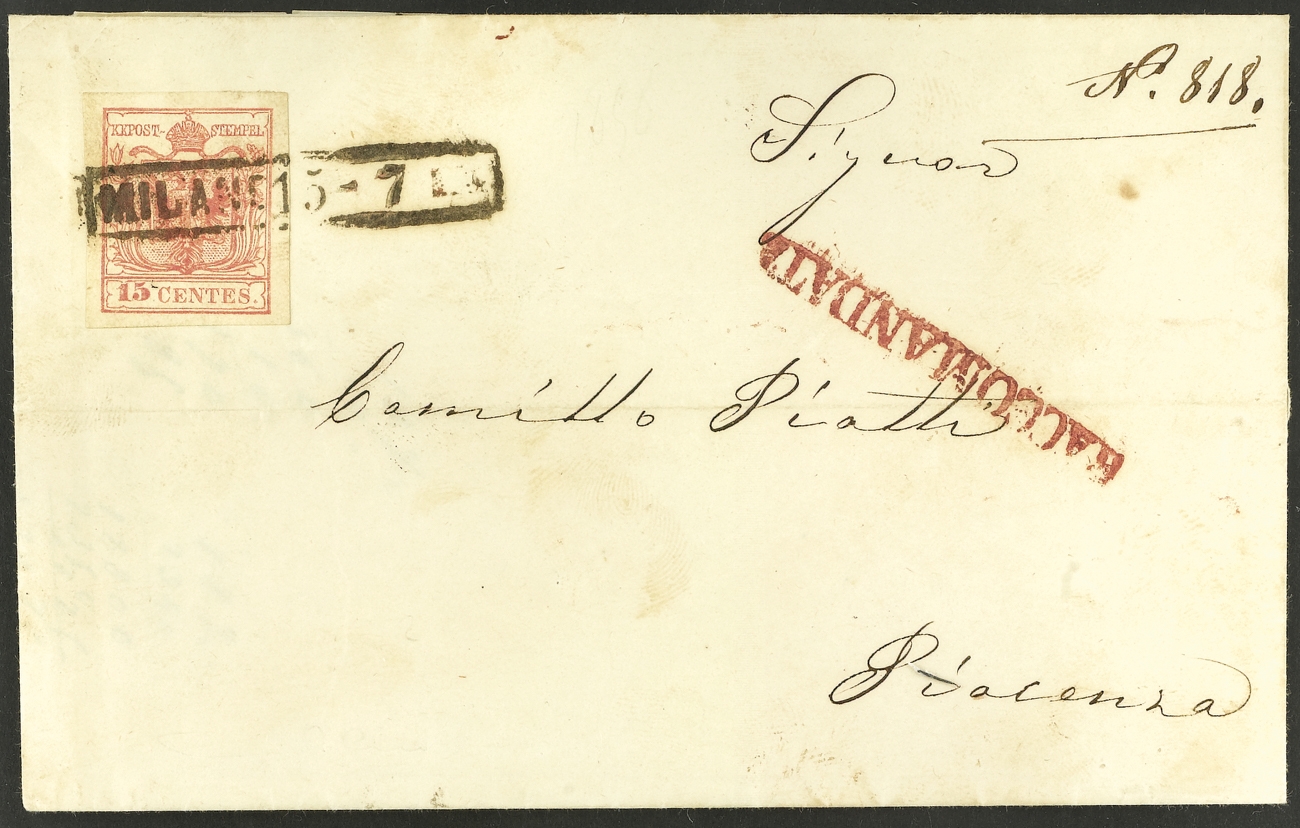 Nº. 818.
Signor
KKPOST-STEMPEL
MILANO 15-7
15 CENTES.
RACCOMANDATA
Camillo Piatti
Piacenza